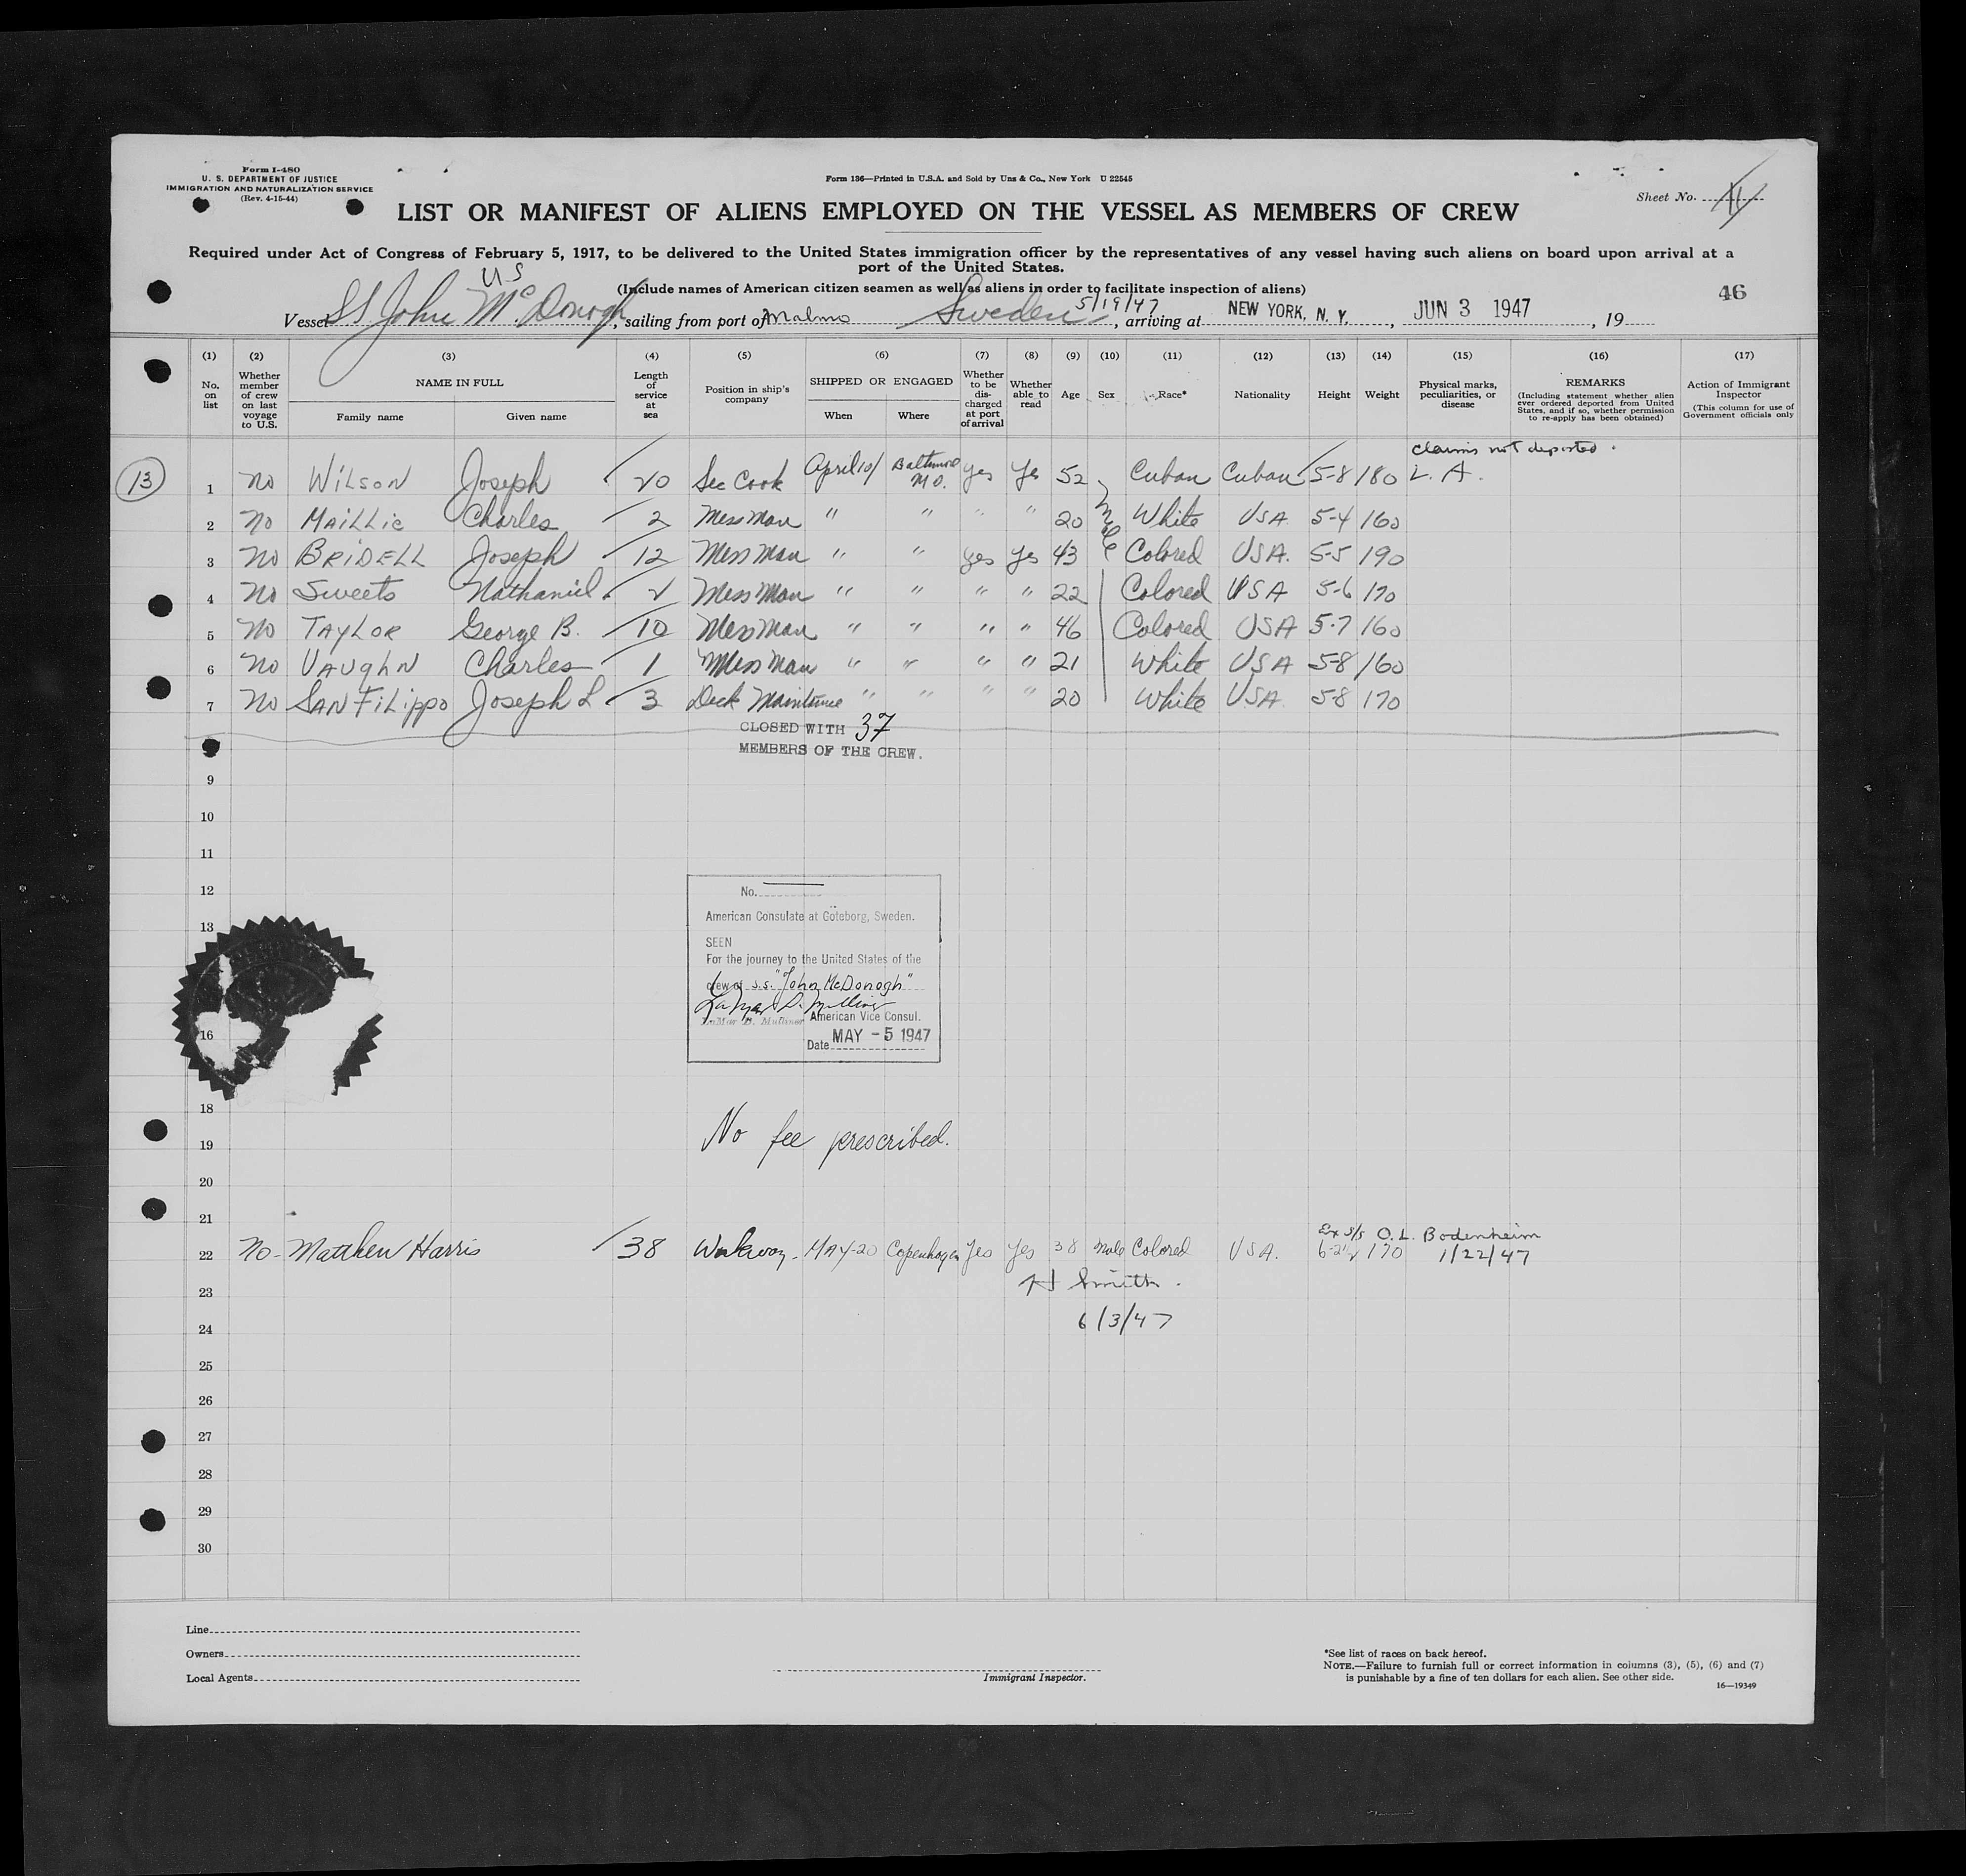 Form I-480
U. S. DEPARTMENT OF JUSTICE
IMMIGRATION AND NATURALIZATION SERVICE
(Rev. 4-15-44)
Form 136—Printed in U.S.A. and Sold by Unz & Co., New York U 22545
Sheet No.
LIST OR MANIFEST OF ALIENS EMPLOYED ON THE VESSEL AS MEMBERS OF CREW
Required under Act of Congress of February 5, 1917, to be delivered to the United States immigration officer by the representatives of any vessel having such aliens on board upon arrival at a
port of the United States.
(Include names of American citizen seamen as well as aliens in order to facilitate inspection of aliens)
46
US
Vessel SS John McDonogh, sailing from port of Malmo Sweden 5/19/47, arriving at NEW YORK, N. Y., JUN 3 1947, 19
(1) (2) (3) (4) (5) (6) (7) (8) (9) (10) (11) (12) (13) (14) (15) (16) (17)
No. on list
Whether member of crew on last voyage to U.S.
NAME IN FULL
Family name
Given name
Length of service at sea
Position in ship's company
SHIPPED OR ENGAGED
When
Where
Whether to be discharged at port of arrival
Whether able to read
Age
Sex
Race*
Nationality
Height
Weight
Physical marks, peculiarities, or disease
REMARKS
(Including statement whether alien ever ordered deported from United States, and if so, whether permission to re-apply has been obtained)
Action of Immigrant Inspector
(This column for use of Government officials only
claims not deported.
13
1 no WILSON Joseph 20 Sec Cook April 10/ Baltimore MD. yes yes 52 Male Cuban Cuban 5-8 180 L. A.
2 no MAILLIE Charles 2 Mess Man " " " " 20 White USA. 5-4 160
3 no BRIDELL Joseph 12 Mess Man " " yes yes 43 Colored USA. 5-5 190
4 no Sweets Nathaniel 2 Mess Man " " " " 22 Colored USA 5-6 170
5 no TAYLOR George B. 10 Mess Man " " " " 46 Colored USA 5-7 160
6 no VAUGHN Charles 1 Mess Man " " " " 21 White USA 5-8 160
7 no SANFILIPPO Joseph L 3 Deck Maintence " " " " 20 White USA. 5-8 170
CLOSED WITH 37
MEMBERS OF THE CREW.
9
10
11
12
No.
13
American Consulate at Göteborg, Sweden.
SEEN
For the journey to the United States of the
crew of S.S. "John McDonogh"
LaMar D. Mulliner American Vice Consul.
16
Date MAY - 5 1947
18
No fee prescribed.
19
20
21
Ex S/s O. L. Bodenheim
22 no- Matthew Harris 38 Workaway MAY-20 Copenhagen Yes Yes 38 Male Colored USA. 6-2½ 170 1/22/47
H Smith.
23
6/3/47
24
25
26
27
28
29
30
Line
Owners
Local Agents
Immigrant Inspector.
*See list of races on back hereof.
NOTE.—Failure to furnish full or correct information in columns (3), (5), (6) and (7)
is punishable by a fine of ten dollars for each alien. See other side.
16—19349